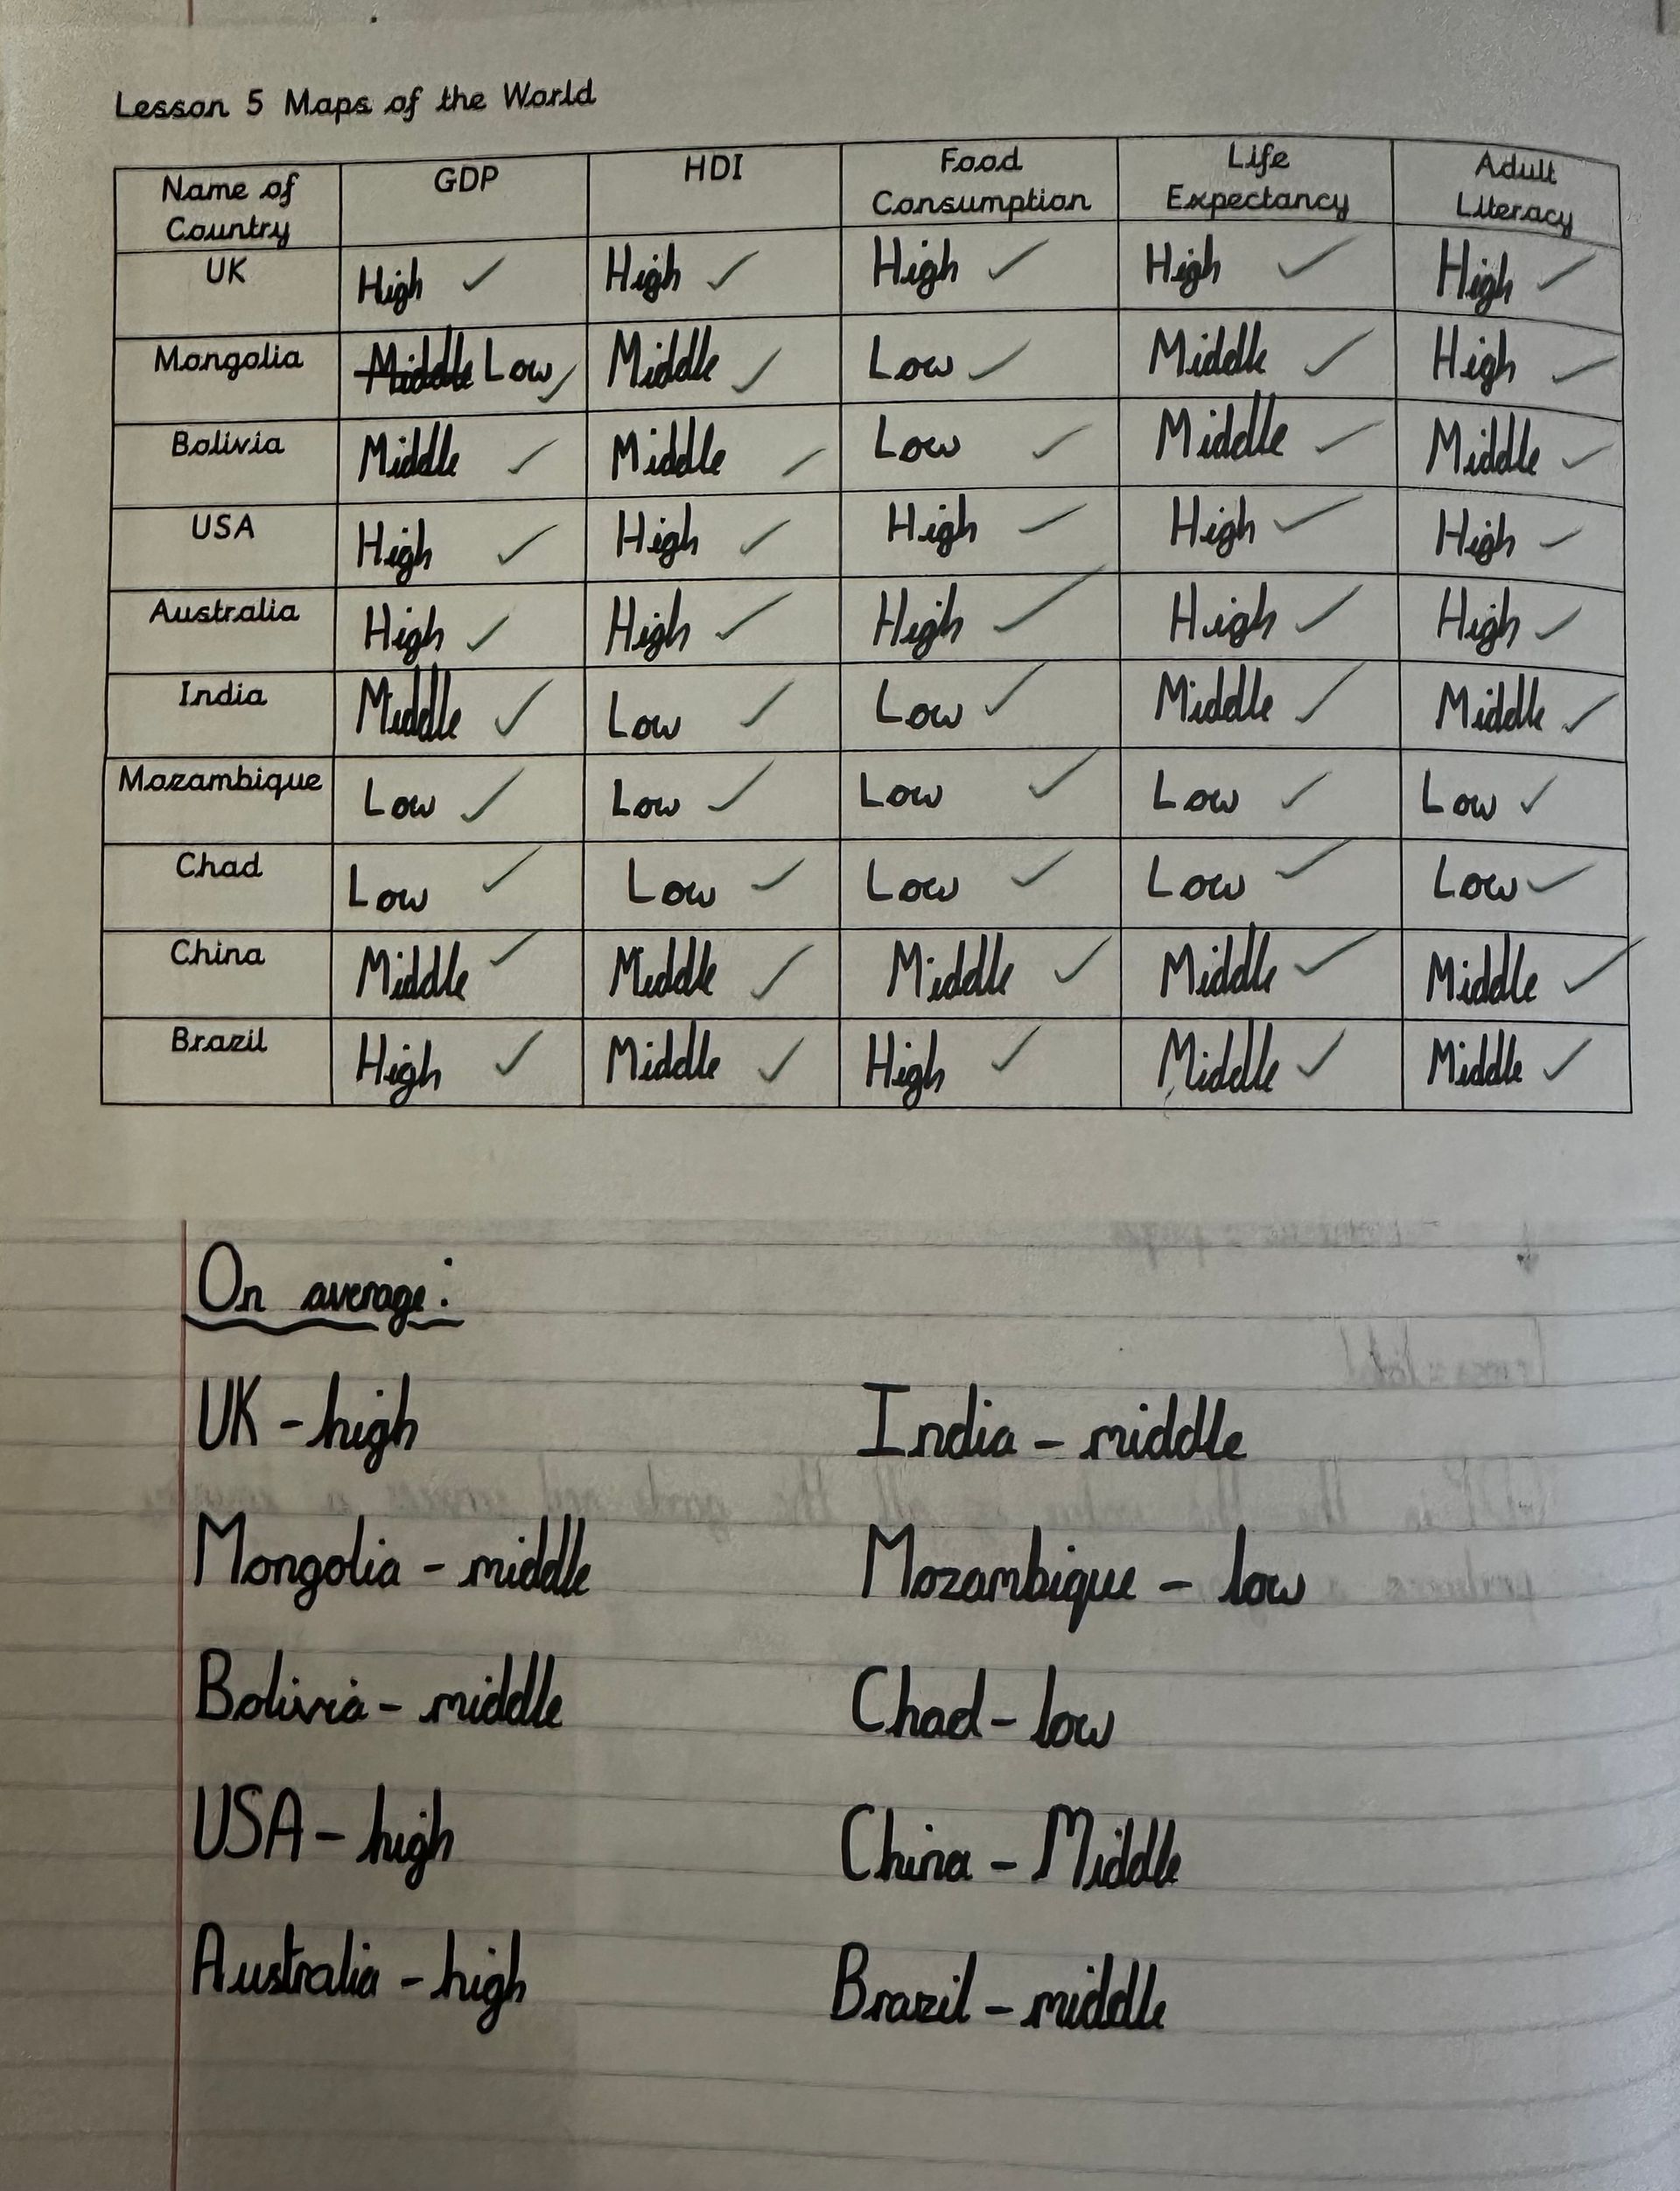 Lesson 5 Maps of the World
Name of Country GDP HDI Food Consumption Life Expectancy Adult Literacy
UK High ✓ High ✓ High ✓ High ✓ High ✓
Mongolia ~~Middle~~ Low ✓ Middle ✓ Low ✓ Middle ✓ High ✓
Bolivia Middle ✓ Middle ✓ Low ✓ Middle ✓ Middle ✓
USA High ✓ High ✓ High ✓ High ✓ High ✓
Australia High ✓ High ✓ High ✓ High ✓ High ✓
India Middle ✓ Low ✓ Low ✓ Middle ✓ Middle ✓
Mozambique Low ✓ Low ✓ Low ✓ Low ✓ Low ✓
Chad Low ✓ Low ✓ Low ✓ Low ✓ Low ✓
China Middle ✓ Middle ✓ Middle ✓ Middle ✓ Middle ✓
Brazil High ✓ Middle ✓ High ✓ Middle ✓ Middle ✓
On average:
UK - high
Mongolia - middle
Bolivia - middle
USA - high
Australia - high
India - middle
Mozambique - low
Chad - low
China - Middle
Brazil - middle